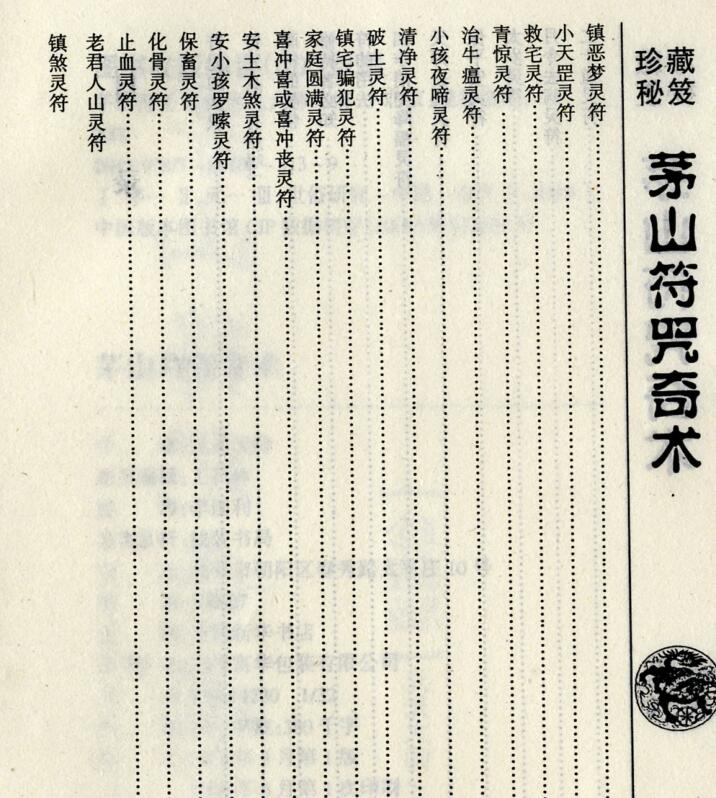 藏笈
珍秘
茅山符咒奇术
镇恶梦灵符
小天罡灵符
救宅灵符
青惊灵符
治牛瘟灵符
小孩夜啼灵符
清净灵符
破土灵符
镇宅骗犯灵符
家庭圆满灵符
喜冲喜或喜冲丧灵符
安土木煞灵符
安小孩罗嗦灵符
保畜灵符
化骨灵符
止血灵符
老君人山灵符
镇煞灵符